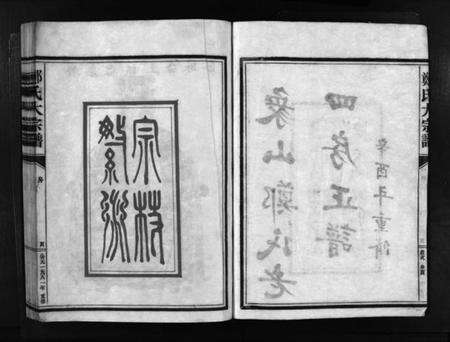 鄭氏大宗譜
象山鄭氏老
四房正譜
辛酉年重修
宗枝
繁衍
鄭氏大宗譜